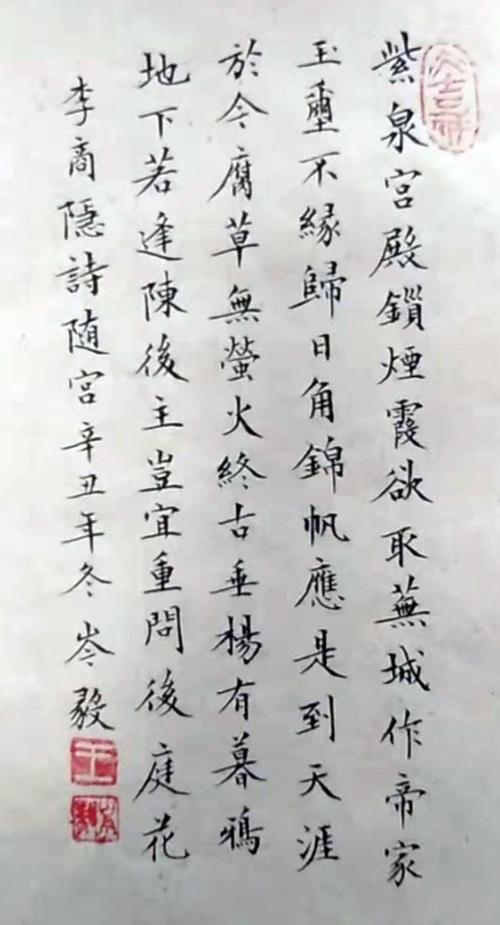 紫泉宫殿鎖煙霞欲取蕪城作帝家
玉璽不緣歸日角錦帆應是到天涯
於今腐草無螢火終古垂楊有暮鴉
地下若逢陳後主豈宜重問後庭花
李商隱詩随宫辛丑年冬岑毅